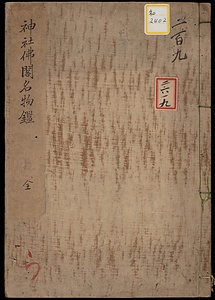 神社佛閣名物鑑
全
二百九
2402
三六一九